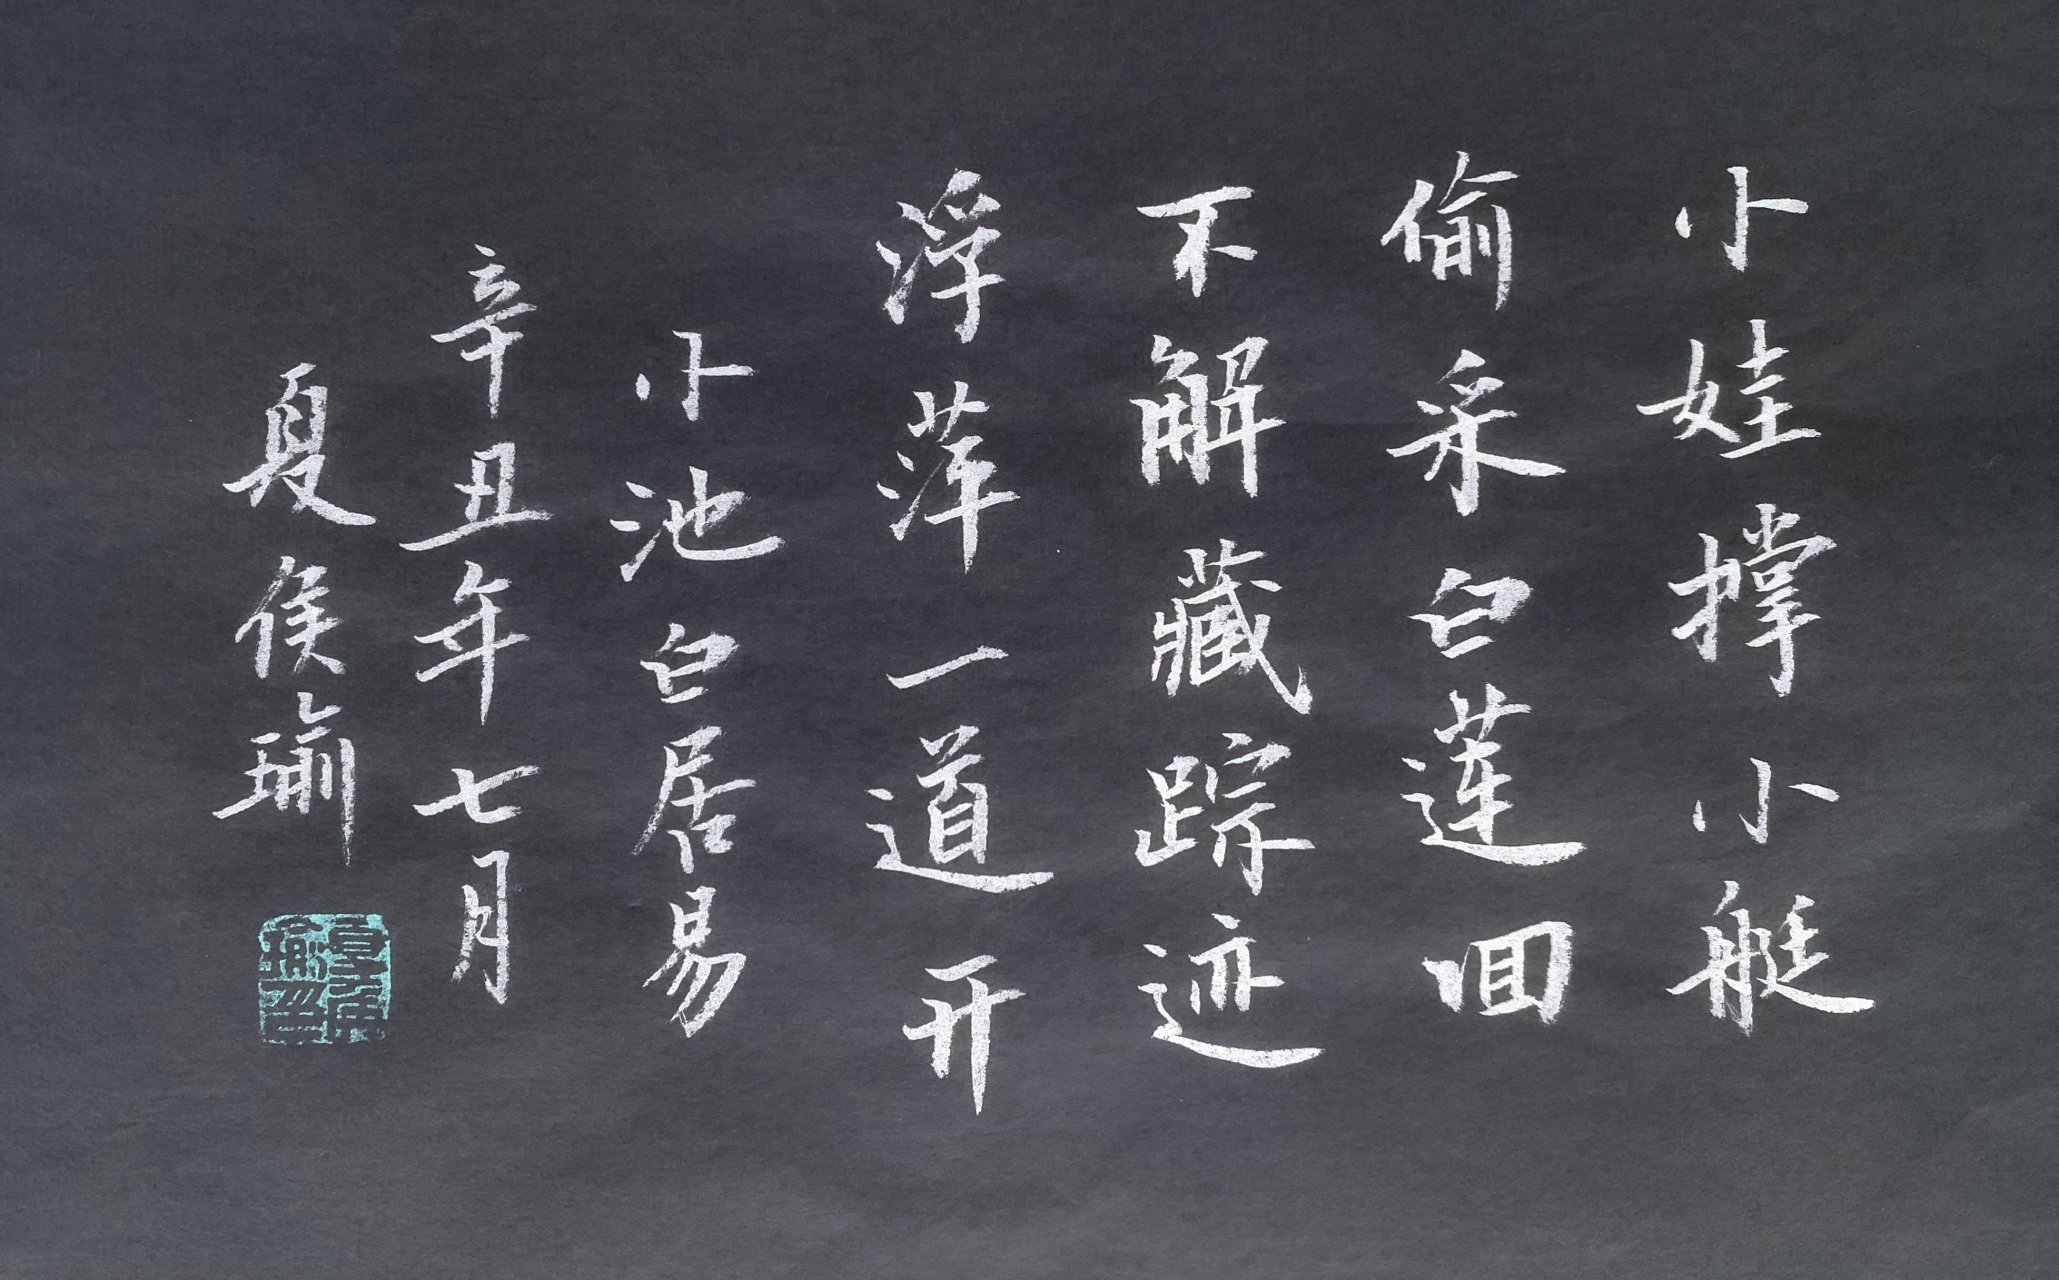 小娃撑小艇
偷采白莲回
不解藏踪迹
浮萍一道开
小池 白居易
辛丑年七月
夏侯瑜